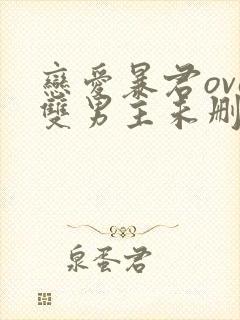 戀愛暴君ova
雙男主未刪
泉蛋君